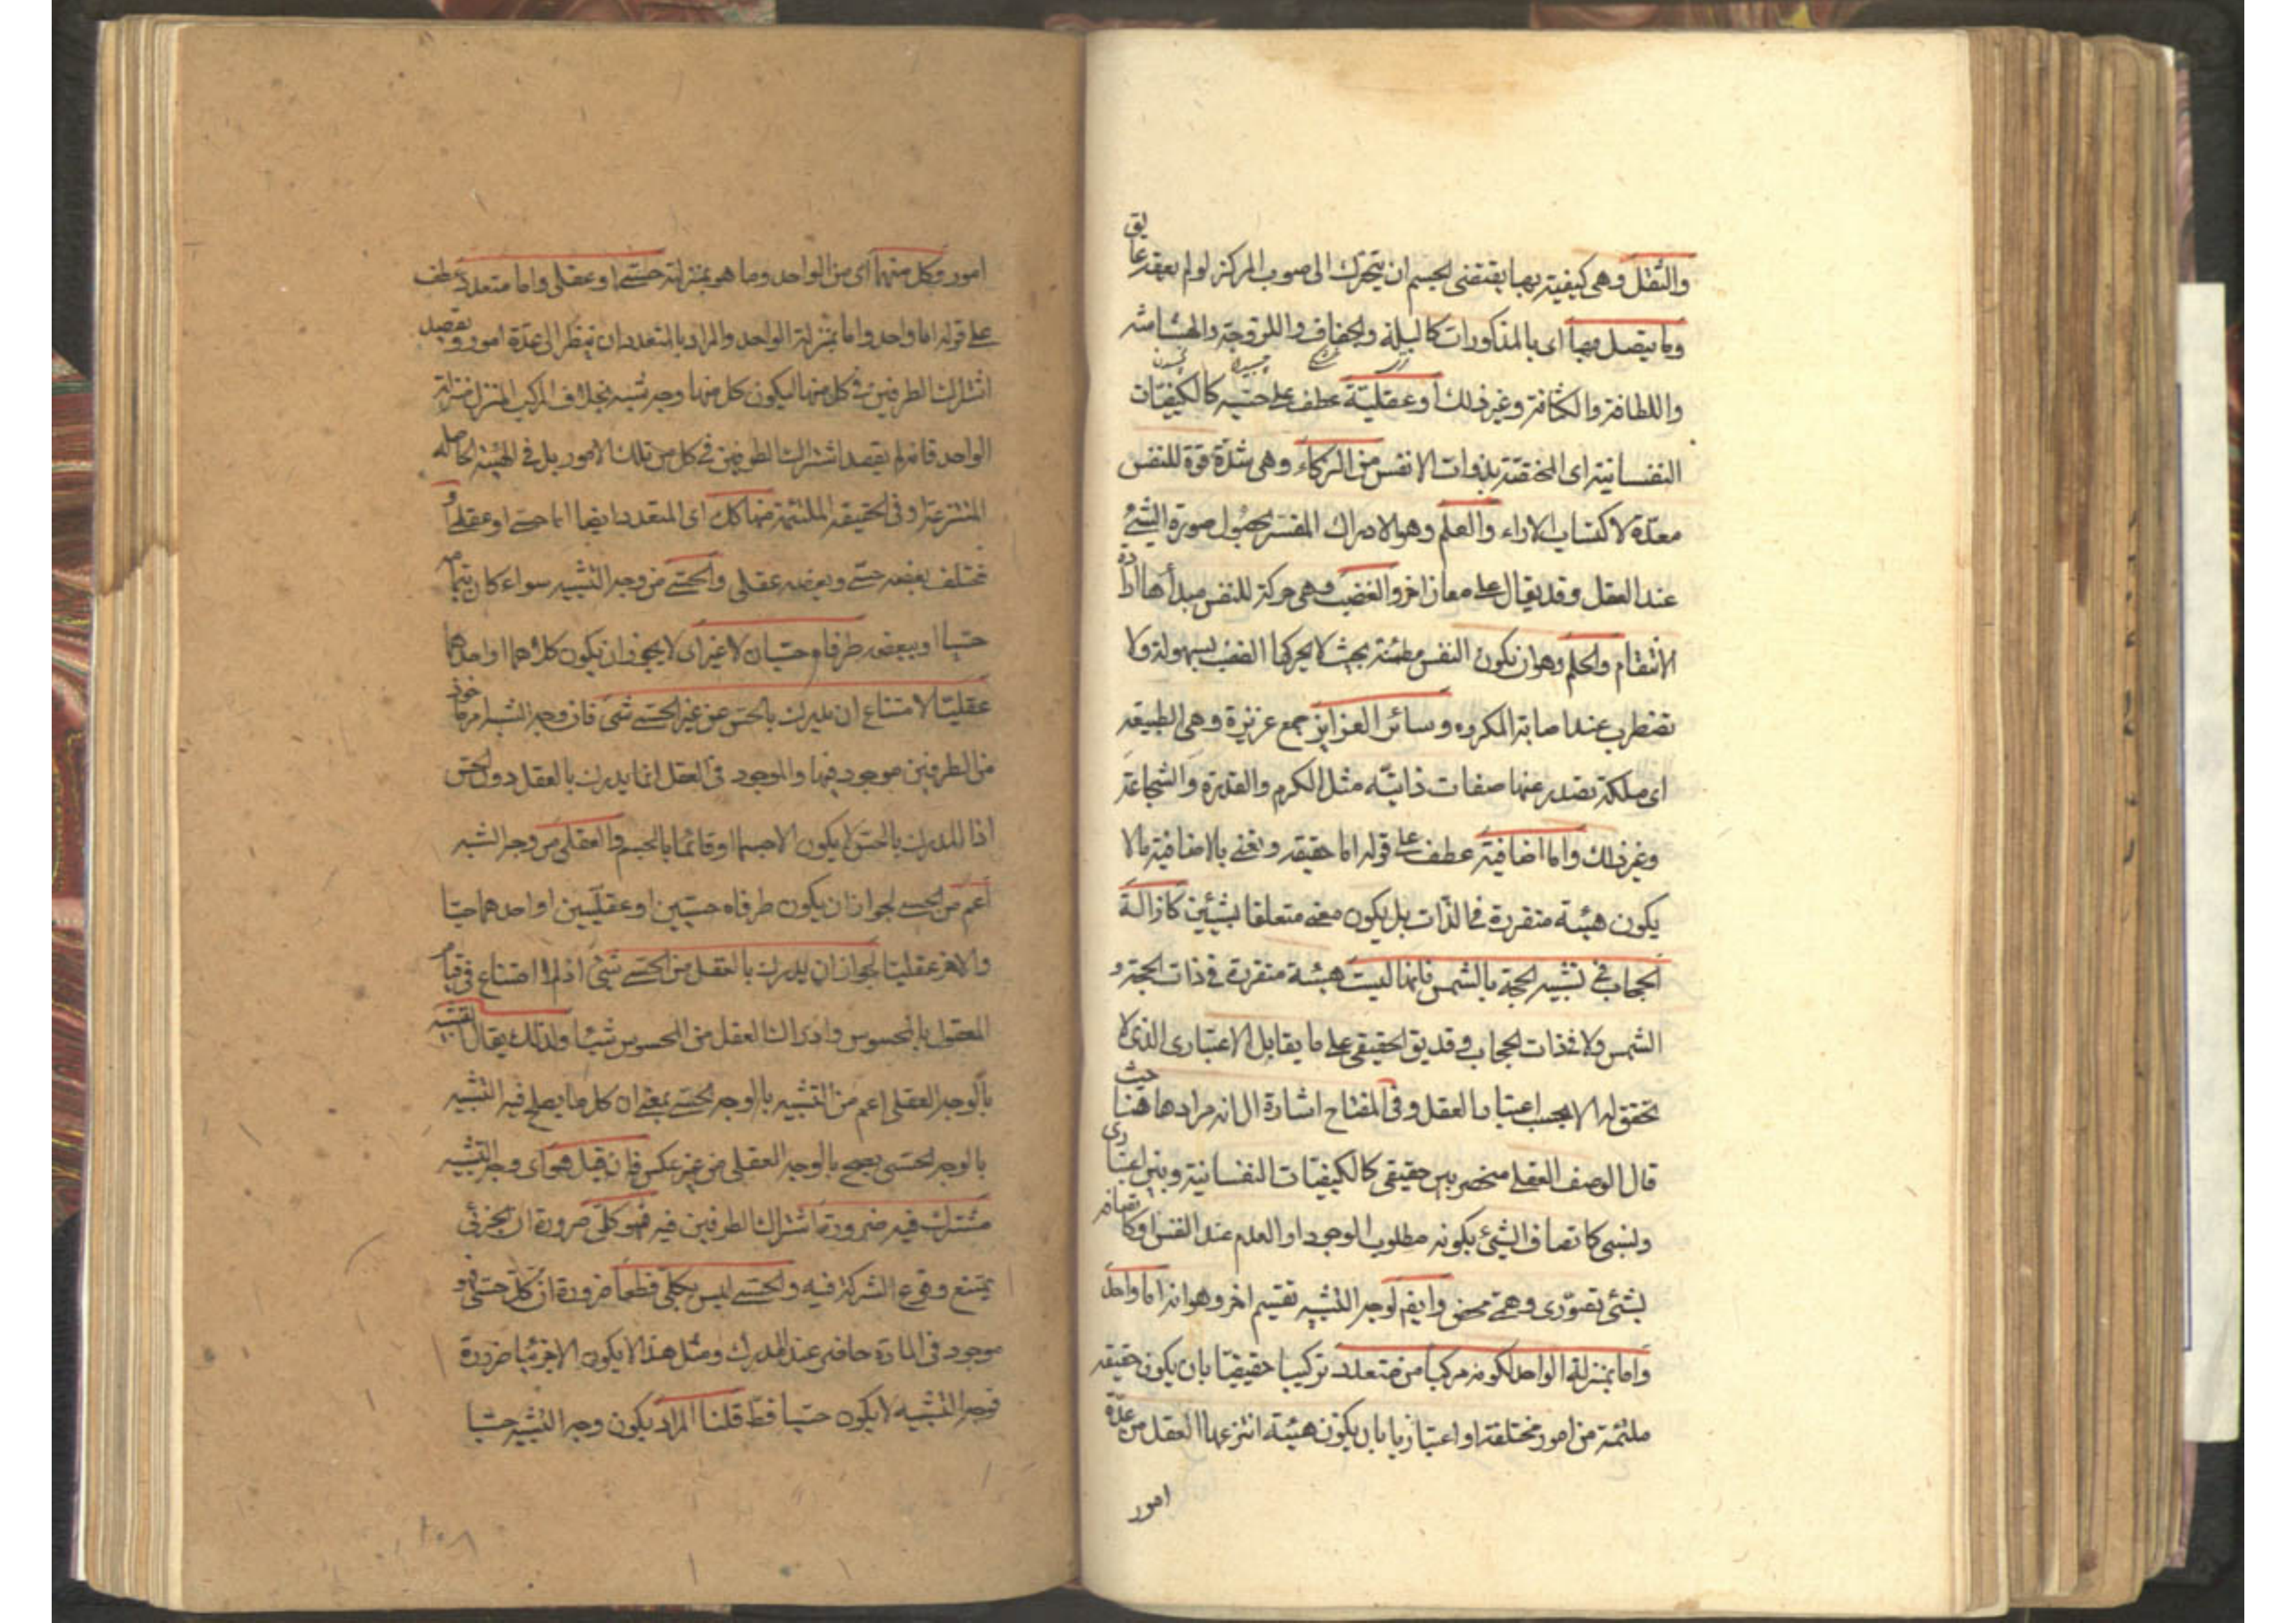 والثقل وهى كيفية بها يقتضى الجسم ان يتحرك الى صوب المركز لو لم يعقه عايق
وما يتصل بها اى بالمذكورات كالبلة والجفاف واللزوجة والهشاشه
واللطافة والكثافة وغير ذلك او عقلية عطف على حسيه كالكيفيات
النفسانية اى المختصة بذوات الانفس من الذكاء وهى شدة قوة للنفس
معدة لاكتساب الاراء والعلم وهو الادراك المفسر بحصول صورة الشئ
عند العقل وقد يقال على معان اخر والغضب وهى حركة للنفس مبدأها ارادة
الانتقام والحلم وهو ان تكون النفس مطمئنة بحيث لا يحركها الغضب بسهولة ولا
تضطرب عند اصابة المكروه وسائر الغرايز جمع غريزة وهى الطبيعه
اى ملكة تصدر عنها صفات ذاتيه مثل الكرم والقدرة والشجاعة
وغير ذلك واما اضافية عطف على قوله اما حقيقه ونعنى بالاضافية مالا
يكون هيئة متقررة فى الذات بل يكون معنى متعلقا بشيئين كازالة
الحجاب فى تشبيه الحجة بالشمس فانها ليست هيئة متقررة فى ذات الحجة و
الشمس ولا فى ذات الحجاب وقد يق الحقيقى على ما يقابل الاعتبارى الذى لا
تحقق له الا بحسب اعتبار العقل وفى المفتاح اشارة الى انه مراد هاهنا حيث
قال الوصف العقلى منحصر بين حقيقى كالكيفيات النفسانية وبين اعتبارى
ونسبى كاتصاف الشئ بكونه مطلوب الوجود او العدم عند النفس او كاتصافه
بشئ تصورى وهمى محض وايضم لوجه التشبيه تقسيم اخر وهو انه اما واحد
واما بمنزلة الواحد لكونه مركبا من متعدد تركيبا حقيقيا بان يكون حقيقه
ملتئمة من امور مختلفة او اعتباريا بان يكون هيئة انتزعها العقل من عدة
امور
امور وكل منهما اى من الواحد وما هو بمنزلته حسى او عقلى واما متعدد عطف
على قوله اما واحد واما بمنزلة الواحد والمراد بالتعدد ان ينظر الى عدة امور ويقصد
اشتراك الطرفين فى كل منها ليكون كل منها وجه تشبيه بخلاف المركب المنزل منزلة
الواحد فانه لم يقصد اشتراك الطرفين فى كل من تلك الامور بل فى الهيئة الحاصله
المنتزعة او فى الحقيقه الملتئمة منها كك اى المتعدد ايضا اما حسى او عقلى او
مختلف بعضه حسى وبعضه عقلى والحسى من وجه التشبيه سواء كان بتمامه
حسيا او ببعضه طرفاه حسيان لا غير اى لا يجوز ان يكون كلاهما او احدهما
عقليا لامتناع ان يدرك بالحس من غير الحسى شئ فان وجه الشبه امر ماخوذ
من الطرفين موجود فيهما والموجود فى العقل انما يدرك بالعقل دون الحس
اذ المدرك بالحس لا يكون الا جسما او قائما بالجسم والعقلى من وجه الشبه
اعم من الحسى لجواز ان يكون طرفاه حسيين او عقليين او احدهما حسيا
والاخر عقليا لجواز ان يدرك بالعقل من الحسى شئ اذ لا امتناع فى قيام
المعقول بالمحسوس وادراك العقل من المحسوس شيئا ولذلك يقال التشبيه
بالوجه العقلى اعم من التشبيه بالوجه الحسى بمعنى ان كل ما يصلح فيه التشبيه
بالوجه الحسى يصح بالوجه العقلى من غير عكس فان قيل هو اى وجه التشبيه
مشترك فيه ضرورة اشتراك الطرفين فيه فهو كلى ضرورة ان الجزئى
يمتنع وقوع الشركة فيه والحسى ليس بكلى قطعا ضرورة ان كل حسى فهو
موجود فى المادة حاضر عند المدرك ومثل هذا لا يكون الا جزئيا ضرورة
فوجه التشبيه لا يكون حسيا قط قلنا المراد بكون وجه التشبيه حسيا
١٥٨